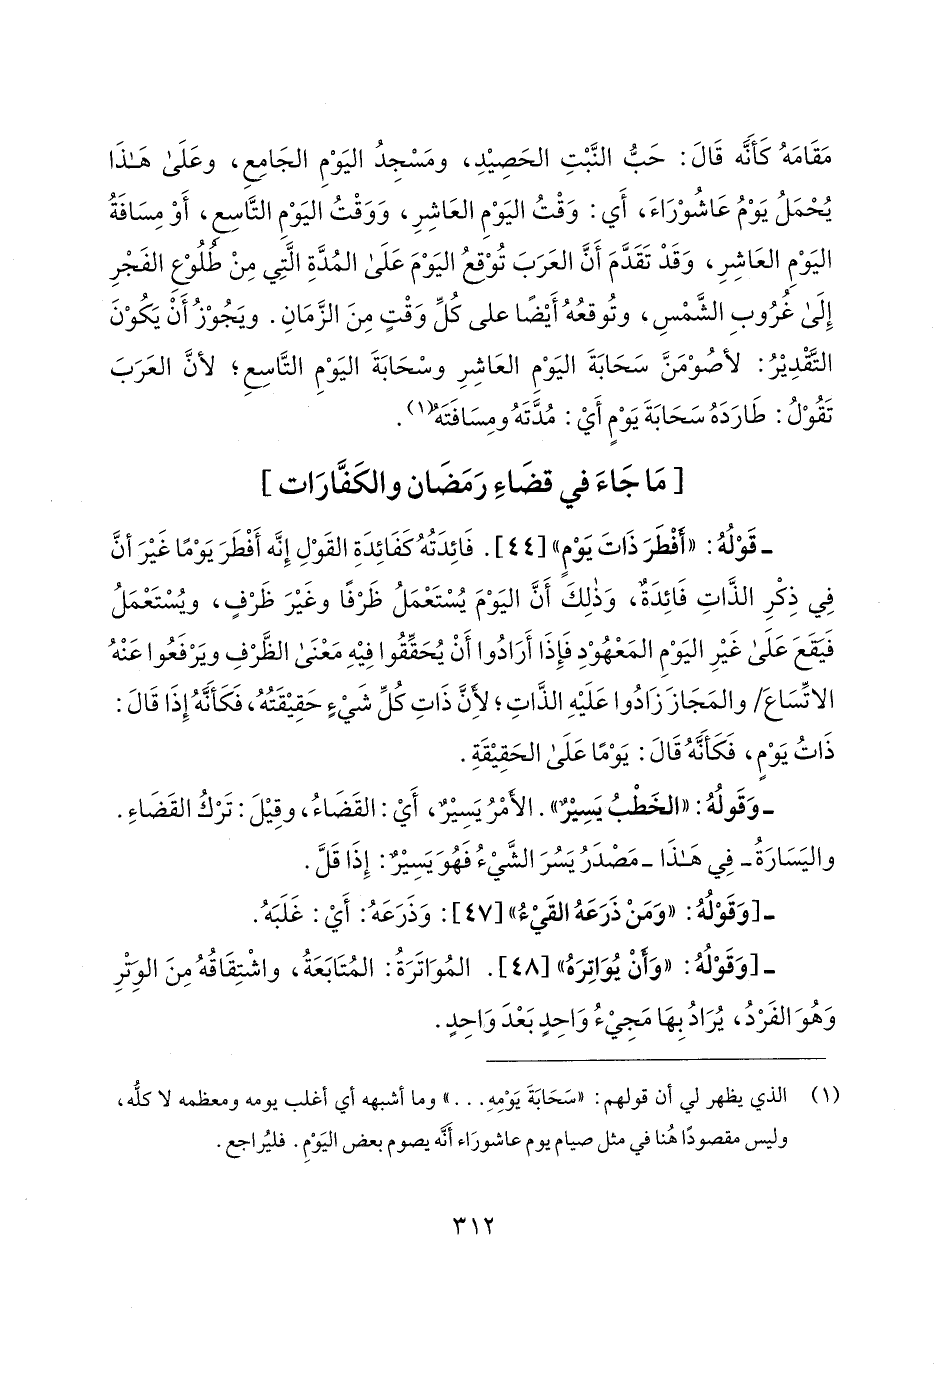 مَقَامَهُ كَأَنَّه قَالَ: حَبُّ النَّبْتِ الحَصِيْدِ، ومَسْجِدُ اليَوْمِ الجَامِعِ، وعَلَىٰ هَـٰذَا
يُحْمَلُ يَوْمُ عَاشُوْرَاءَ، أَي: وَقْتُ اليَوْمِ العَاشِرِ، وَوَقْتُ اليَوْمِ التَّاسِعِ، أَوْ مِسَافَةُ
اليَوْمِ العَاشِرِ، وَقَدْ تَقَدَّمَ أَنَّ العَرَبَ تُوْقِعُ اليَوْمَ عَلَىٰ المُدَّةِ الَّتِي مِنْ طُلُوْعِ الفَجْرِ
إِلَىٰ غُرُوبِ الشَّمْسِ، وتُوقعُهُ أَيْضًا على كُلِّ وَقْتٍ مِنَ الزَّمَانِ. ويَجُوْزُ أَنْ يَكُوْنَ
التَّقْدِيْرُ: لأصُوْمَنَّ سَحَابَةَ اليَوْمِ العَاشِرِ وسْحَابَةَ اليَوْمِ التَّاسِعِ؛ لأنَّ العَرَبَ
تَقُوْلُ: طَارَدَهُ سَحَابَةَ يَوْمٍ أَيْ: مُدَّتَهُ ومِسَافَتَهُ(١).
[مَا جَاءَ في قضَاءِ رَمَضَان والكَفَّارَات]
ـ قَوْلُهُ: «أَفْطَرَ ذَاتَ يَوْمٍ» [٤٤]. فَائِدَتُهُ كَفَائِدَةِ القَوْلِ إِنَّه أَفْطَرَ يَوْمًا غَيْرَ أنَّ
فِي ذِكْرِ الذَّاتِ فَائِدَةٌ، وَذٰلِكَ أَنَّ اليَوْمَ يُسْتَعْمَلُ ظَرْفًا وغَيْرَ ظَرْفٍ، ويُسْتَعْمَلُ
فَيَقَعَ عَلَىٰ غَيْرِ اليَوْمِ المَعْهُوْدِ فَإِذَا أَرَادُوا أَنْ يُحَقِّقُوا فِيْهِ مَعْنَىٰ الظَّرْفِ ويَرْفَعُوا عَنْهُ
الاتِّسَاعَ/ والمَجَازَ زَادُوا عَلَيْهِ الذَّاتِ؛ لأَنَّ ذَاتِ كُلِّ شَيْءٍ حَقِيْقَتُهُ، فَكَأَنَّهُ إِذَا قَالَ:
ذَاتُ يَوْمٍ، فَكَأَنَّهُ قَالَ: يَوْمًا عَلَىٰ الحَقِيْقَةِ.
ـ وَقَولُهُ: «الخَطْبُ يَسِيْرٌ». الأَمْرُ يَسِيْرٌ، أَيْ: القَضَاءُ، وقِيْلَ: تَرْكُ القَضَاءِ.
واليَسَارَةُ ـ فِي هَـٰذَا ـ مَصْدَرُ يَسُرَ الشَّيْءُ فَهُوَ يَسِيْرٌ: إِذَا قَلَّ.
ـ [وَقَوْلُهُ: «وَمَنْ ذَرَعَهُ القَيْءُ» [٤٧]: وَذَرَعَهُ: أَيْ: غَلَبَهُ.
ـ [وَقَوْلُهُ: «وَأَنْ يُوَاتِرَهُ» [٤٨]. المُوَاتَرَةُ: المُتَابَعَةُ، واشْتِقَاقُهُ مِنَ الوَتْرِ
وَهُوَ الفَرْدُ، يُرَادُ بِهَا مَجِيْءُ وَاحِدٍ بَعْدَ وَاحِدٍ.
(١) الذي يظهر لي أن قولهم: «سَحَابَةَ يَوْمِهِ...» وما أشبهه أي أغلب يومه ومعظمه لا كلُّه،
وليس مقصودًا هُنا في مثل صيام يوم عاشورَاء أنَّه يصوم بعض اليَوْمِ. فليُراجع.
٣١٢